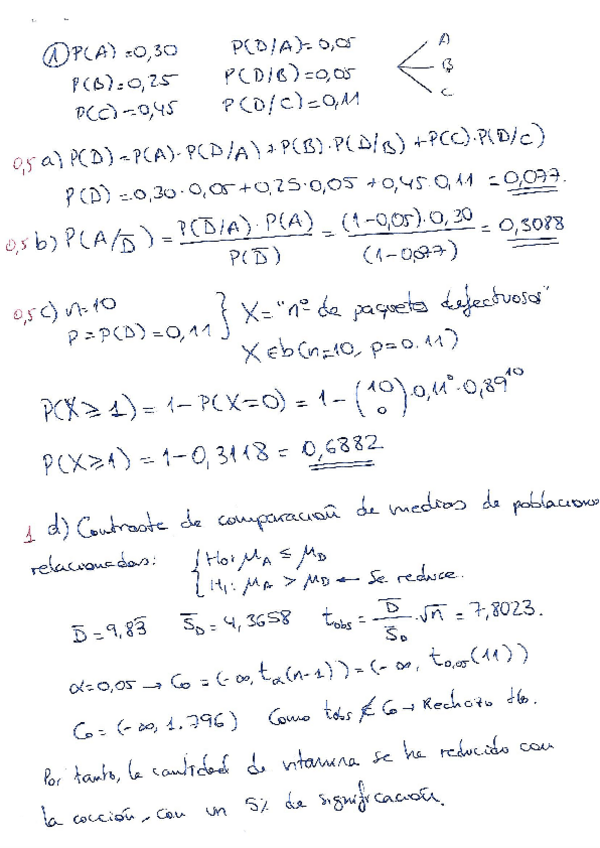 ① P(A)=0,30 P(D/A)=0,05 A
P(B)=0,25 P(D/B)=0,05 B
P(C)=0,45 P(D/C)=0,11 C
0,5 a) P(D)=P(A)·P(D/A)+P(B)·P(D/B)+P(C)·P(D/C)
P(D)=0,30·0,05+0,25·0,05+0,45·0,11=0,077.
0,5 b) P(A/D̅)=P(D̅/A)·P(A)/P(D̅)=(1-0,05)·0,30/(1-0,077)=0,3088
0,5 c) n=10
p=P(D)=0,11 } X="nº de paquetes defectuosos"
X∈b(n=10, p=0.11)
P(X≥1)=1-P(X=0)=1-(10 0)·0,11⁰·0,89¹⁰
P(X≥1)=1-0,3118=0,6882
1 d) Contraste de comparación de medias de poblaciones
relacionadas: { H₀: μA ≤ μD
{ H₁: μA > μD ← Se reduce.
D̅=9,83̅ S̅D=4,3658 tobs=D̅/S̅D·√n=7,8023.
α=0,05 → C₀=(-∞, tα(n-1))=(-∞, t0,05(11))
C₀=(-∞, 1.796) Como tobs ∉ C₀ → Rechazo H₀.
Por tanto, la cantidad de vitamina se ha reducido con
la cocción, con un 5% de significación.